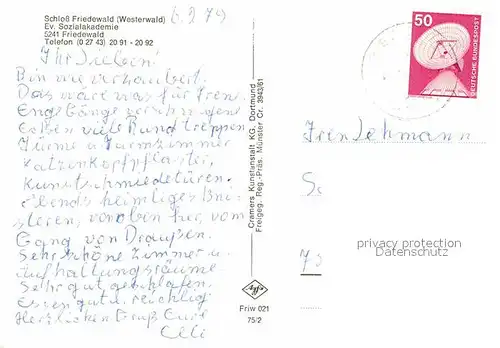 Schloß Friedewald (Westerwald)
Ev. Sozialakademie
5241 Friedewald
Telefon (0 27 43) 20 91 - 20 92
6.2.79
Ihr Lieben!
Bin wie verzaubert.
Das wäre was für Iren
Enge Gänge
viele Rundtreppen
Türme u Turmzimmer
Katzenkopfpflaster,
Kunstschmiedetüren.
Abends heimliges
von oben hier vom
Gang von Draußen.
Sehr schöne Zimmer u.
Aufhaltungsräume
Sehr gut geschlafen.
Essen gut u. reichlig
Herzlichen Gruß Eure
Cramers Kunstanstalt KG, Dortmund
Freigeg. Reg.-Präs. Münster Cr. 3943/61
Agfa
Friw 021
75/2
50
DEUTSCHE BUNDESPOST
Iren Lehmann
privacy protection
Datenschutz